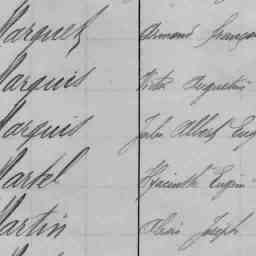 Marquet Armand François
Marquis Victor Augustin
Marquis Jules Albert Eug
Martel Hyacinthe Eugèn
Martin Henri Joseph